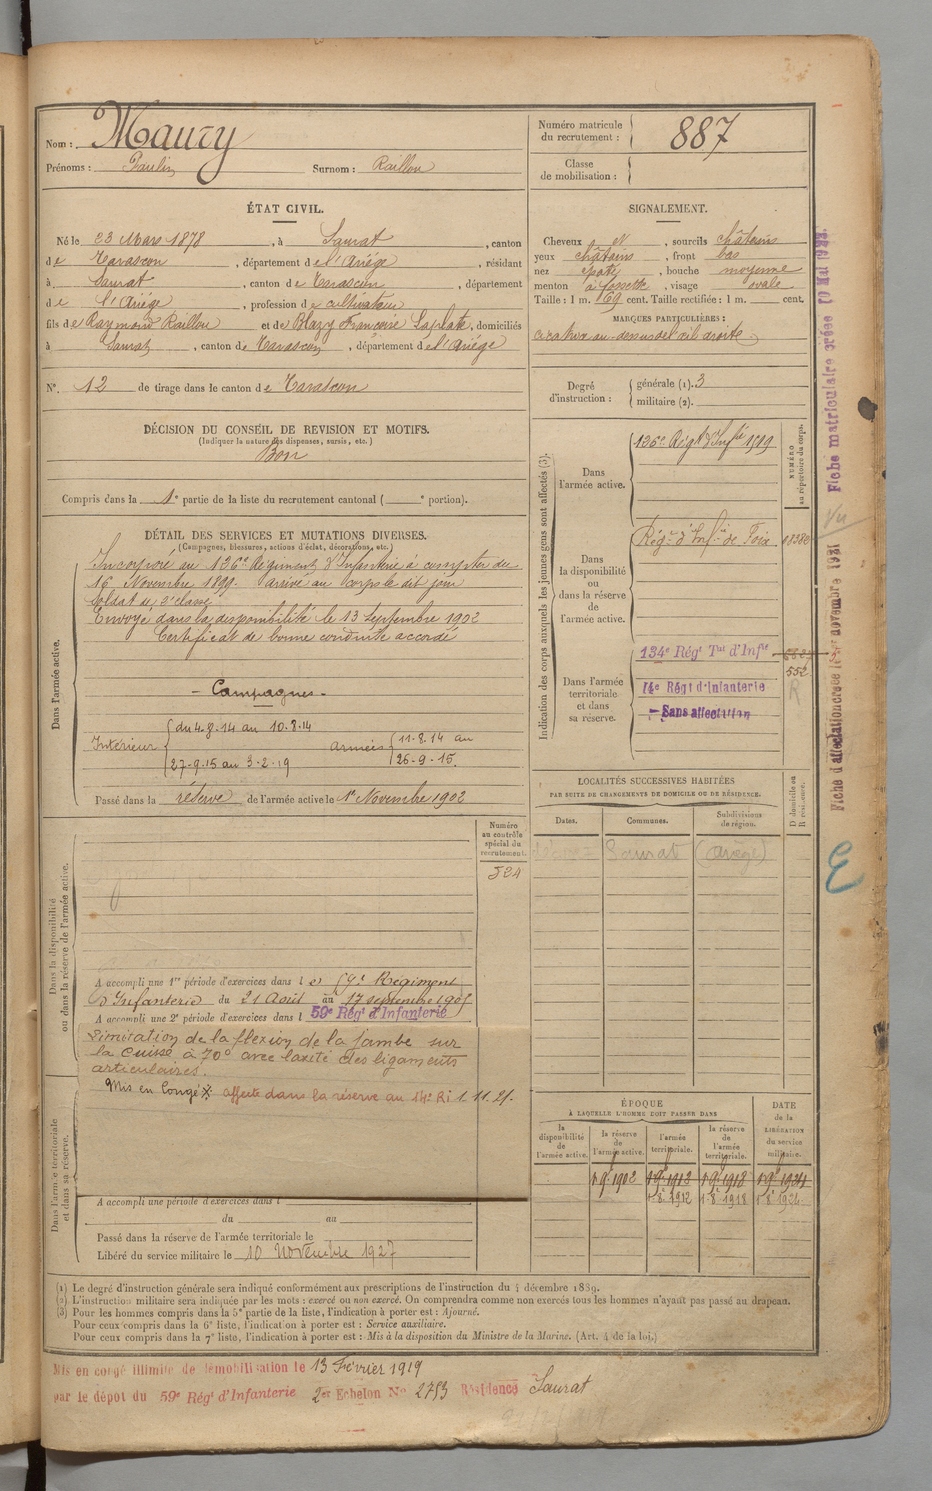 Nom : Maury
Prénoms : Paulin Surnom : Raillou
Numéro matricule du recrutement : 887
Classe de mobilisation :
ÉTAT CIVIL.
Né le 23 Mars 1878, à Saurat, canton
de Tarascon, département de l'Ariége, résidant
à Saurat, canton de Tarascon, département
de l'Ariége, profession de cultivateur
fils de Raymond Raillou et de Blazy Françoise Laplate, domiciliés
à Saurat, canton de Tarascon, département de l'Ariége
N° 12 de tirage dans le canton de Tarascon
SIGNALEMENT.
Cheveux et, sourcils châtains
yeux châtains, front bas
nez épaté, bouche moyenne
menton à fossette, visage ovale
Taille : 1 m. 69 cent. Taille rectifiée : 1 m. cent.
MARQUES PARTICULIÈRES :
cicatrice au-dessus de l'œil droite
Degré d'instruction :
générale (1). 3
militaire (2).
DÉCISION DU CONSEIL DE REVISION ET MOTIFS.
(Indiquer la nature des dispenses, sursis, etc.)
Bon
Compris dans la 1e partie de la liste du recrutement cantonal ( e portion).
DÉTAIL DES SERVICES ET MUTATIONS DIVERSES.
(Campagnes, blessures, actions d'éclat, décorations, etc.)
Dans l'armée active.
Incorporé au 136e Régiment d'Infanterie à compter du
16 Novembre 1899. arrivé au corps le dit jour
soldat de 2e classe
Envoyé dans la disponibilité le 13 Septembre 1902
Certificat de bonne conduite accordé
- Campagnes -
Intérieur
du 4.8.14 au 10.8.14
27-9.15 au 3-2-19
armées
11.8.14 au
26-9-15.
Passé dans la réserve de l'armée active le 1er Novembre 1902
Indication des corps auxquels les jeunes gens sont affectés (3).
NUMÉRO au répertoire du corps.
Dans l'armée active.
136e Régt d'Infie 1919
Dans la disponibilité ou dans la réserve de l'armée active.
Régt d'Infie de Foix
Dans l'armée territoriale et dans sa réserve.
134e Régt Tal d'Infie
552
R
14e Régt d'Infanterie
- Sans affectation
LOCALITÉS SUCCESSIVES HABITÉES
PAR SUITE DE CHANGEMENTS DE DOMICILE OU DE RÉSIDENCE.
D domicile ou R résidence.
Dates. Communes. Subdivisions de région.
Saurat (Ariège)
Dans la disponibilité ou dans la réserve de l'armée active.
Numéro au contrôle spécial du recrutement.
524
A accompli une 1re période d'exercices dans le 59e Régiment
d'Infanterie du 21 Août au 17 septembre 1905
A accompli une 2e période d'exercices dans l 59e Régt d'Infanterie
Limitation de la flexion de la jambe sur
la cuisse à 70° avec laxité des ligaments
articulaires.
Mis en Congé affecté dans la réserve au 14e RI 1.11.21.
Dans l'armée territoriale et dans sa réserve.
A accompli une période d'exercices dans l
du au
Passé dans la réserve de l'armée territoriale le
Libéré du service militaire le 10 Novembre 1927
ÉPOQUE
À LAQUELLE L'HOMME DOIT PASSER DANS
la disponibilité de l'armée active.
la réserve de l'armée active.
l'armée territoriale.
la réserve de l'armée territoriale.
DATE de la LIBÉRATION du service militaire.
1 9bre 1902 1 9bre 1912 1 9bre 1918 1 9bre 1924
1.8e 1912 1.8e 1918 1.8e 1924
(1) Le degré d'instruction générale sera indiqué conformément aux prescriptions de l'instruction du 4 décembre 1889.
(2) L'instruction militaire sera indiquée par les mots : exercé ou non exercé. On comprendra comme non exercés tous les hommes n'ayant pas passé au drapeau.
(3) Pour les hommes compris dans la 5e partie de la liste, l'indication à porter est : Ajourné.
Pour ceux compris dans la 6e liste, l'indication à porter est : Service auxiliaire.
Pour ceux compris dans la 7e liste, l'indication à porter est : Mis à la disposition du Ministre de la Marine. (Art. 4 de la loi.)
Mis en congé illimité de démobilisation le 13 Février 1919
par le dépôt du 59e Régt d'Infanterie 2er Echelon N° 2753 Résidence Saurat
Fiche matriculaire créée 10 Mai 1923.
Vu
Fiche d'affectation créée le novembre 1921
E